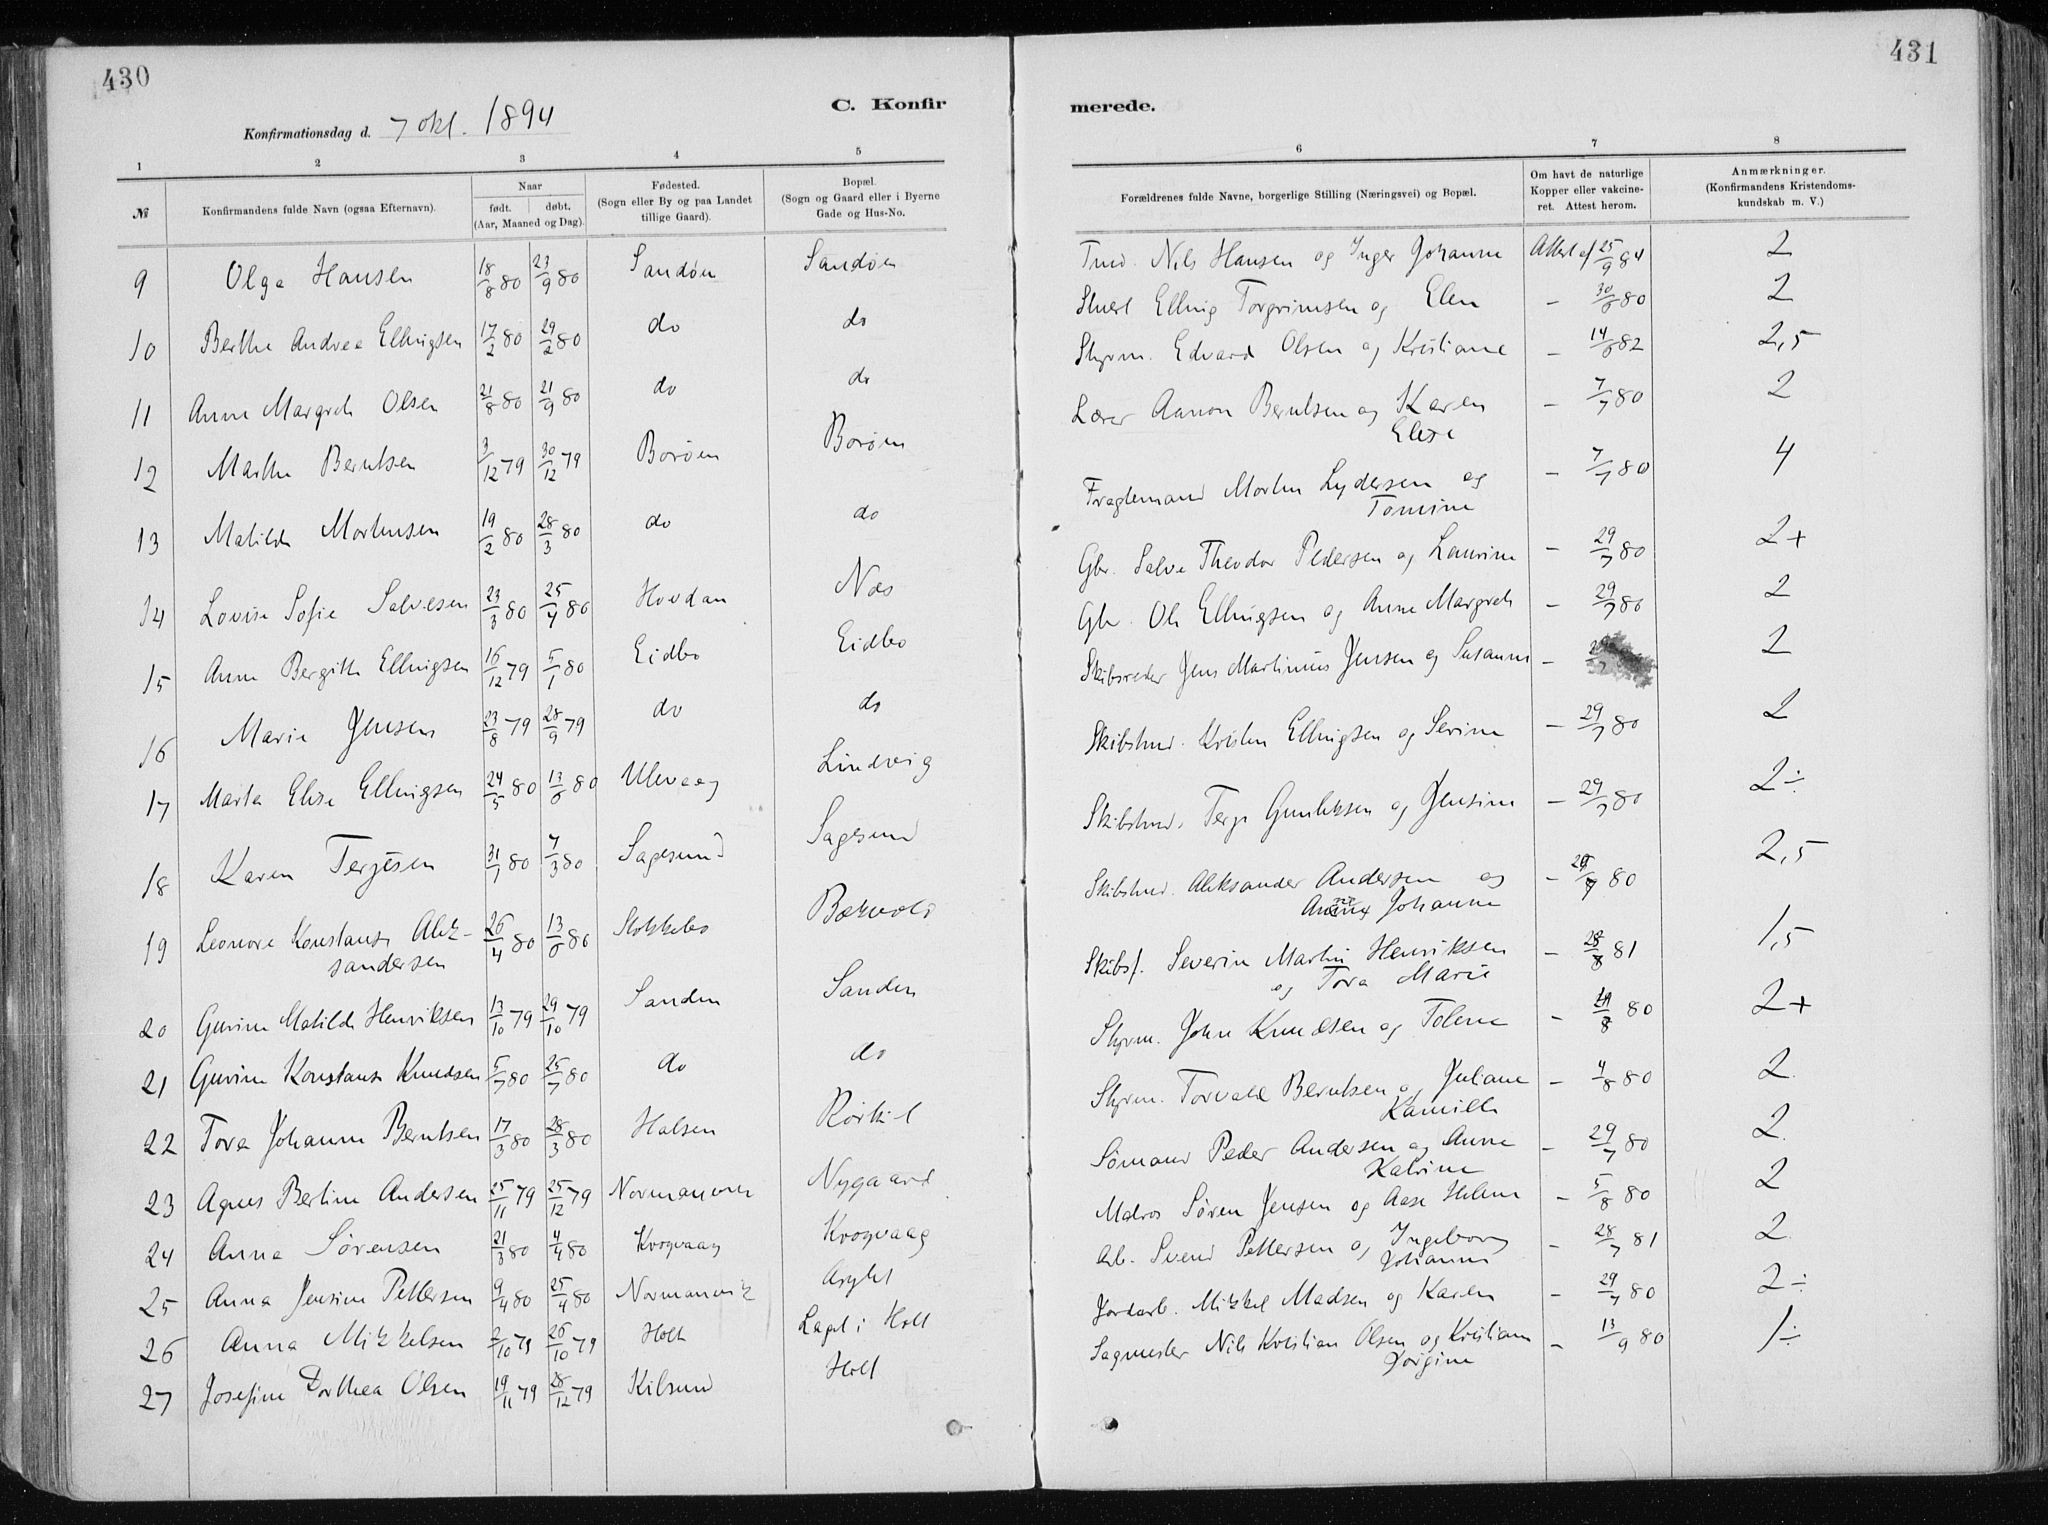 430
431
C. Konfir
merede.
Konfirmationsdag d. 7 okt. 1894
1 2 3 4 5 6 7 8
№
Konfirmandens fulde Navn (ogsaa Efternavn).
Naar
født. døbt.
(Aar, Maaned og Dag).
Fødested.
(Sogn eller By og paa Landet
tillige Gaard).
Bopæl.
(Sogn og Gaard eller i Byerne
Gade og Hus-No.
Forældrenes fulde Navne, borgerlige Stilling (Næringsvei) og Bopæl.
Om havt de naturlige
Kopper eller vakcine-
ret. Attest herom.
Anmærkninger.
(Konfirmandens Kristendoms-
kundskab m. V.)
9 Olga Hansen 18/8 80 23/9 80 Sandøen Sandøen Nils Hansen og Inger Johanne Attest af 25/9 84 2
10 Berthe Andrea Ellingsen 17/2 80 29/2 80 do do Elling Torgrimsen og Elen - 30/6 80 2
11 Anne Margreth Olsen 21/8 80 21/9 80 do do Styrm. Edvard Olsen og Kristiane - 14/6 82 2,5
12 Marthe Berntsen 3/12 79 30/12 79 Borøen Borøen Lærer Aanon Berntsen og Karen - 7/7 80 2
Elise
13 Matilde Mortensen 19/2 80 28/3 80 do do Morten Lydersen og - 7/7 80 4
Tomine
14 Lovise Sofie Salvesen 23/3 80 25/4 80 Hovdan Næs Gbr. Salve Theodor Pedersen og Laurine - 29/7 80 2+
15 Anne Bergithe Ellingsen 16/12 79 5/1 80 Eidbo Eidbo Gbr. Ole Ellingsen og Anne Margreth - 29/7 80 2
16 Marie Jensen 23/8 79 28/9 79 do do Skibsreder Jens Martinius Jensen og Susanne - 2
17 Marta Elise Ellingsen 24/5 80 13/6 80 Ulevaag Lindvig Skibstmd. Kristen Ellingsen og Serine - 29/7 80 2
18 Karen Terjesen 31/1 80 7/3 80 Sagesund Sagesund Skibstmd. Terje Gunleksen og Jensine - 29/7 80 2÷
19 Leonore Konstanse Alek- 26/4 80 13/6 80 Stokkebo Skibstmd. Aleksander Andersen og - 80 2,5
sandersen
Johanne
20 Guvine Matilde Henriksen 13/10 79 29/10 79 Sanden Sanden Skibsf. Severin Martin Henriksen - 28/8 81 1,5
og Tora Marie
21 Guvine Konstanse Knudsen 5/7 80 25/7 80 do do Styrm. John Knudsen og Tolene - 80 2+
22 Tora Johanne Berntsen 17/3 80 28/3 80 Halsen Rørkil Styrm. Torvald Berntsen og Juliane - 4/8 80 2
Kamilla
23 Agnes Bertine Andersen 25/11 79 25/12 79 Normanvik Nygaard Sømand Peder Andersen og Anne - 29/7 80 2
Katrine
24 Anna Sørensen 21/3 80 4/4 80 Krogvaag Krogvaag Matros Søren Jensen og Aase Helene - 5/8 80 2
25 Anna Jensine Pettersen 9/4 80 25/4 80 Normanvik Asylet Arb. Svend Pettersen og Ingeborg - 28/7 81 2
Johanne
26 Anna Mikkelsen 2/10 79 26/10 79 Holt Laget i Holt Jordarb. Mikkel Madsen og Karen - 29/7 80 2÷
27 Josefine Dorthea Olsen 19/11 79 28/12 79 Kilsund Holt Sagmester Nils Kristian Olsen og Kristiane - 13/9 80 1÷
Jorgine